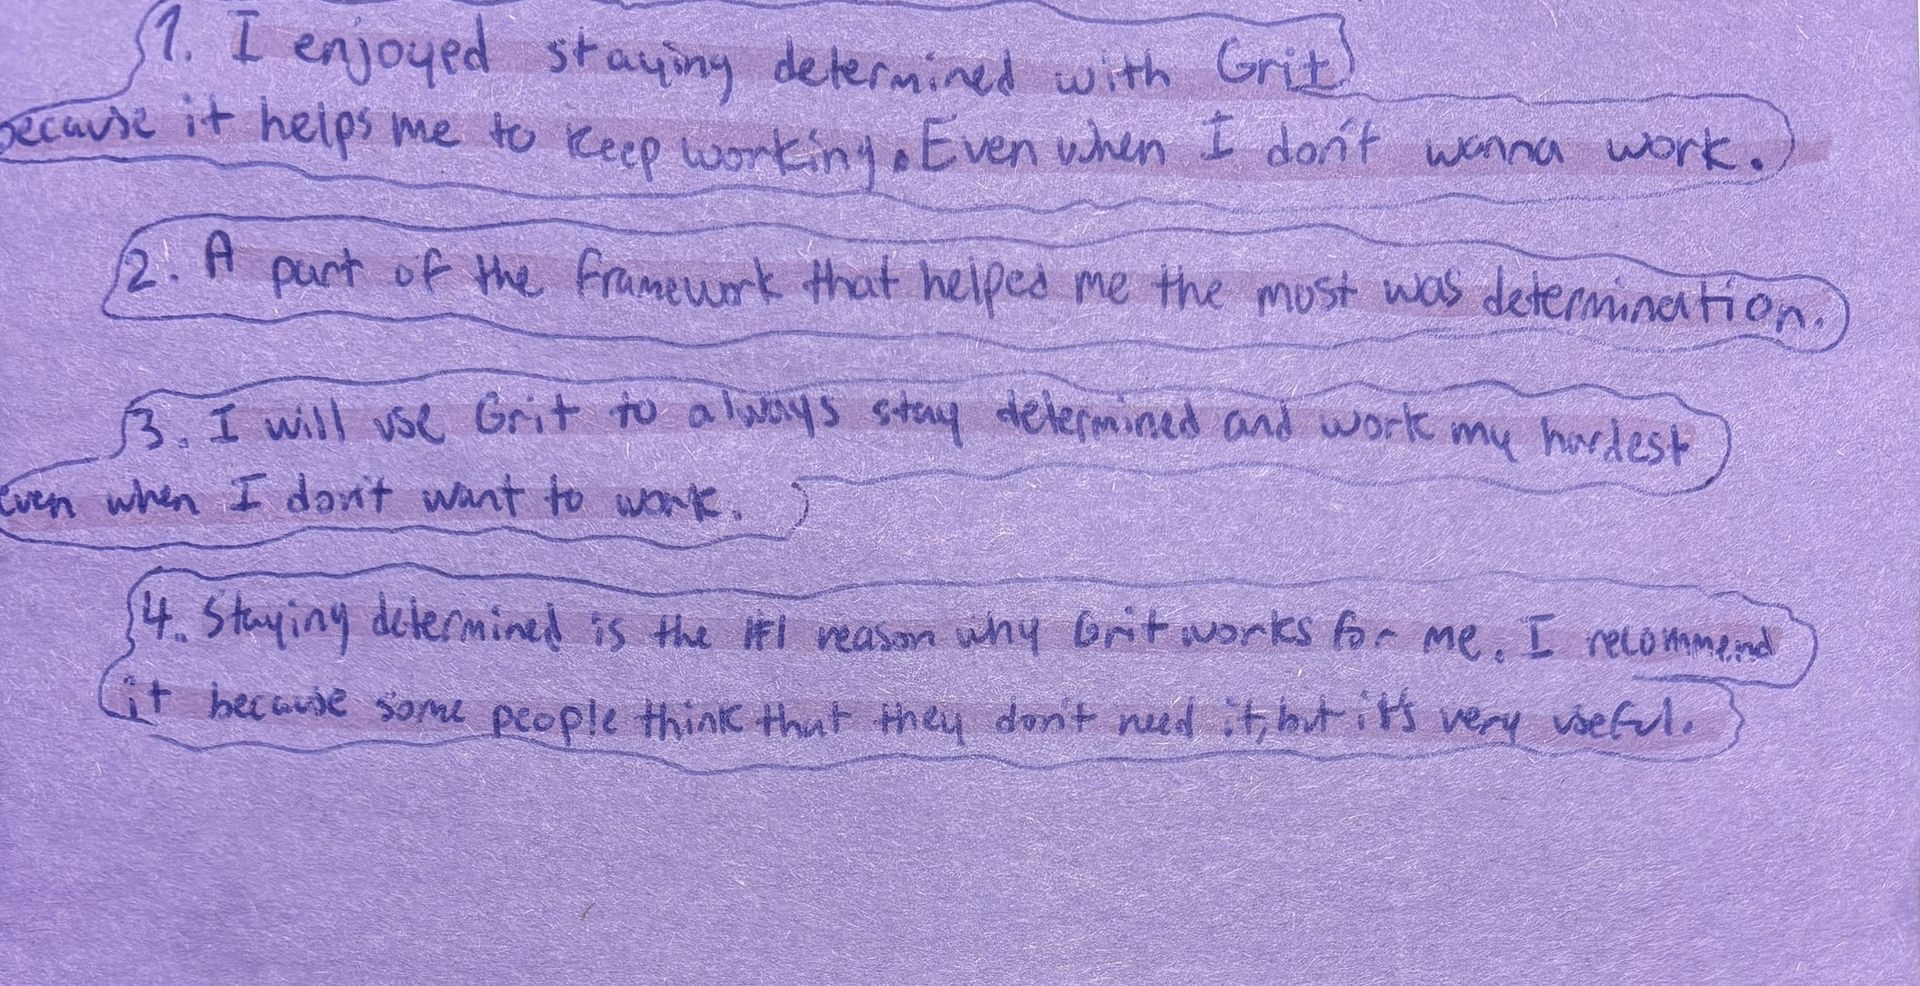 1. I enjoyed staying determined with Grit
because it helps me to keep working. Even when I don't wanna work.
2. A part of the framework that helped me the most was determination.
3. I will use Grit to always stay determined and work my hardest
even when I don't want to work.
4. Staying determined is the #1 reason why Grit works for me. I recommend
it because some people think that they don't need it, but it's very useful.